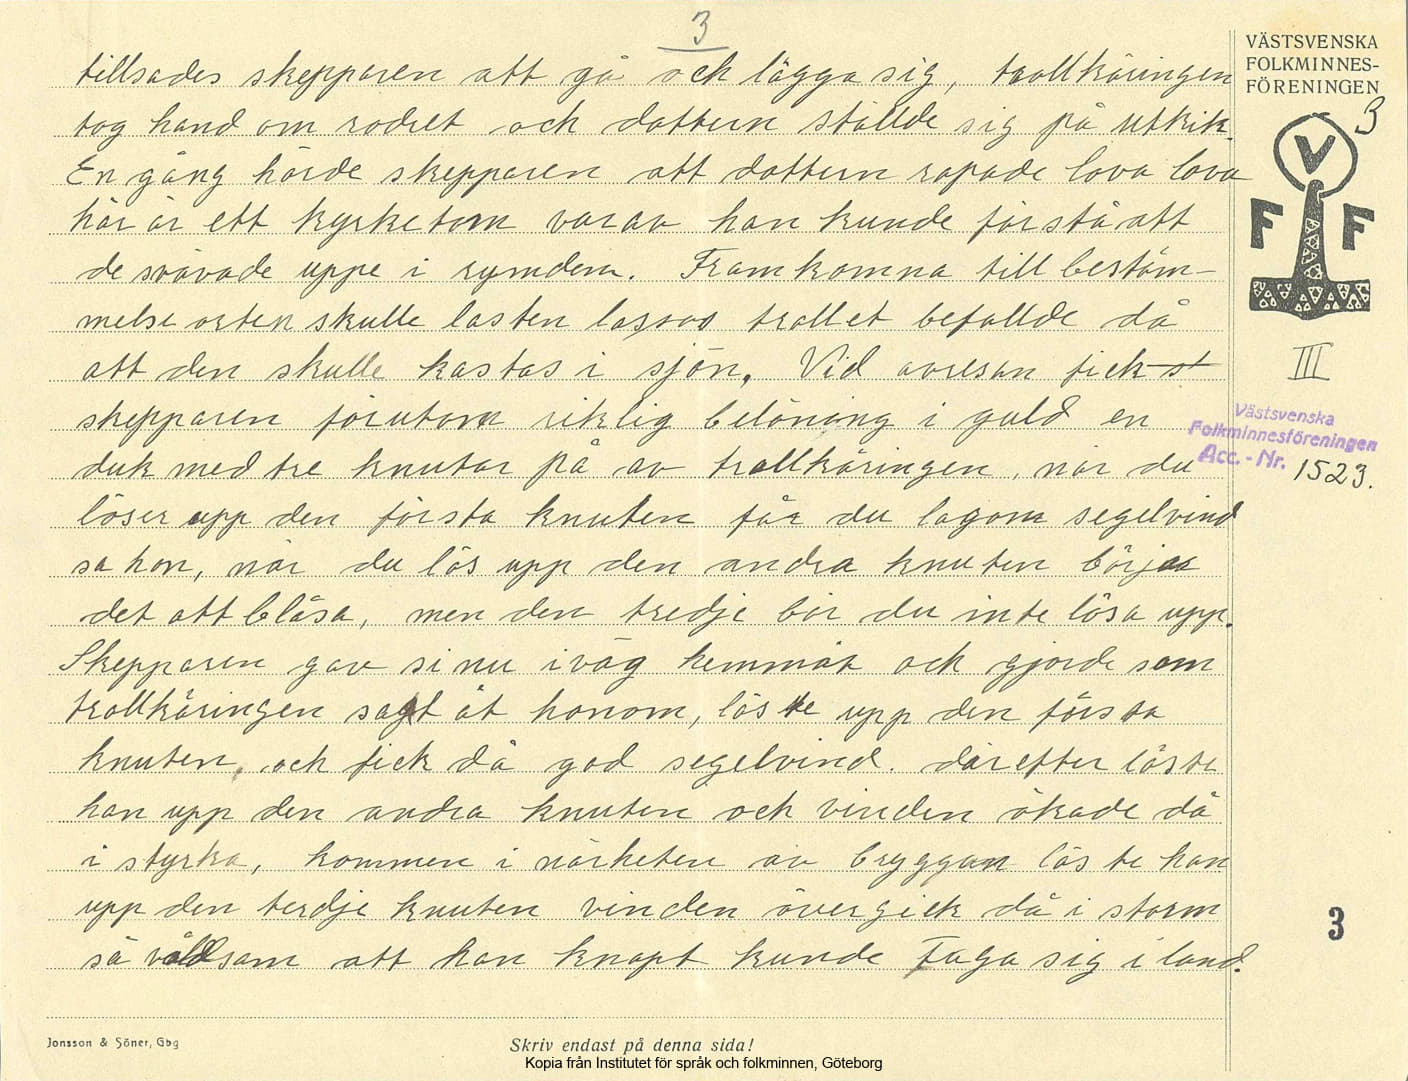 3
tillsades skepparen att gå och lägga sig, trollkäringen
tog hand om rodret och dottern ställde sig på utkik.
En gång hörde skepparen att dottern ropade lova lova
här är ett kyrketorn varav han kunde förstå att
de svävade uppe i rymden. Framkomna till bestäm-
melse orten skulle lasten lossas trollet befallde då
att den skulle kastas i sjön. Vid avresan fick
skepparen förutom riklig belöning i guld en
duk med tre knutar på av trollkäringen, när du
löser upp den första knuten får du lagom segelvind
sa hon, när du lös upp den andra knuten börjar
det att blåsa, men den tredje bör du inte lösa upp.
Skepparen gav si nu iväg hemmåt och gjorde som
trollkäringen sagt åt honom, löste upp den första
knuten, och fick då god segelvind. därefter löste
han upp den andra knuten och vinden ökade då
i styrka, kommen i närheten av bryggan löste han
upp den terdje knuten vinden övergick då i storm
så våldsam att han knapt kunde taga sig i land.
VÄSTSVENSKA
FOLKMINNES-
FÖRENINGEN
3
V
F F
III
Västsvenska
Folkminnesföreningen
Acc.-Nr. 1523.
3
Jonsson & Söner, Gbg
Skriv endast på denna sida!
Kopia från Institutet för språk och folkminnen, Göteborg